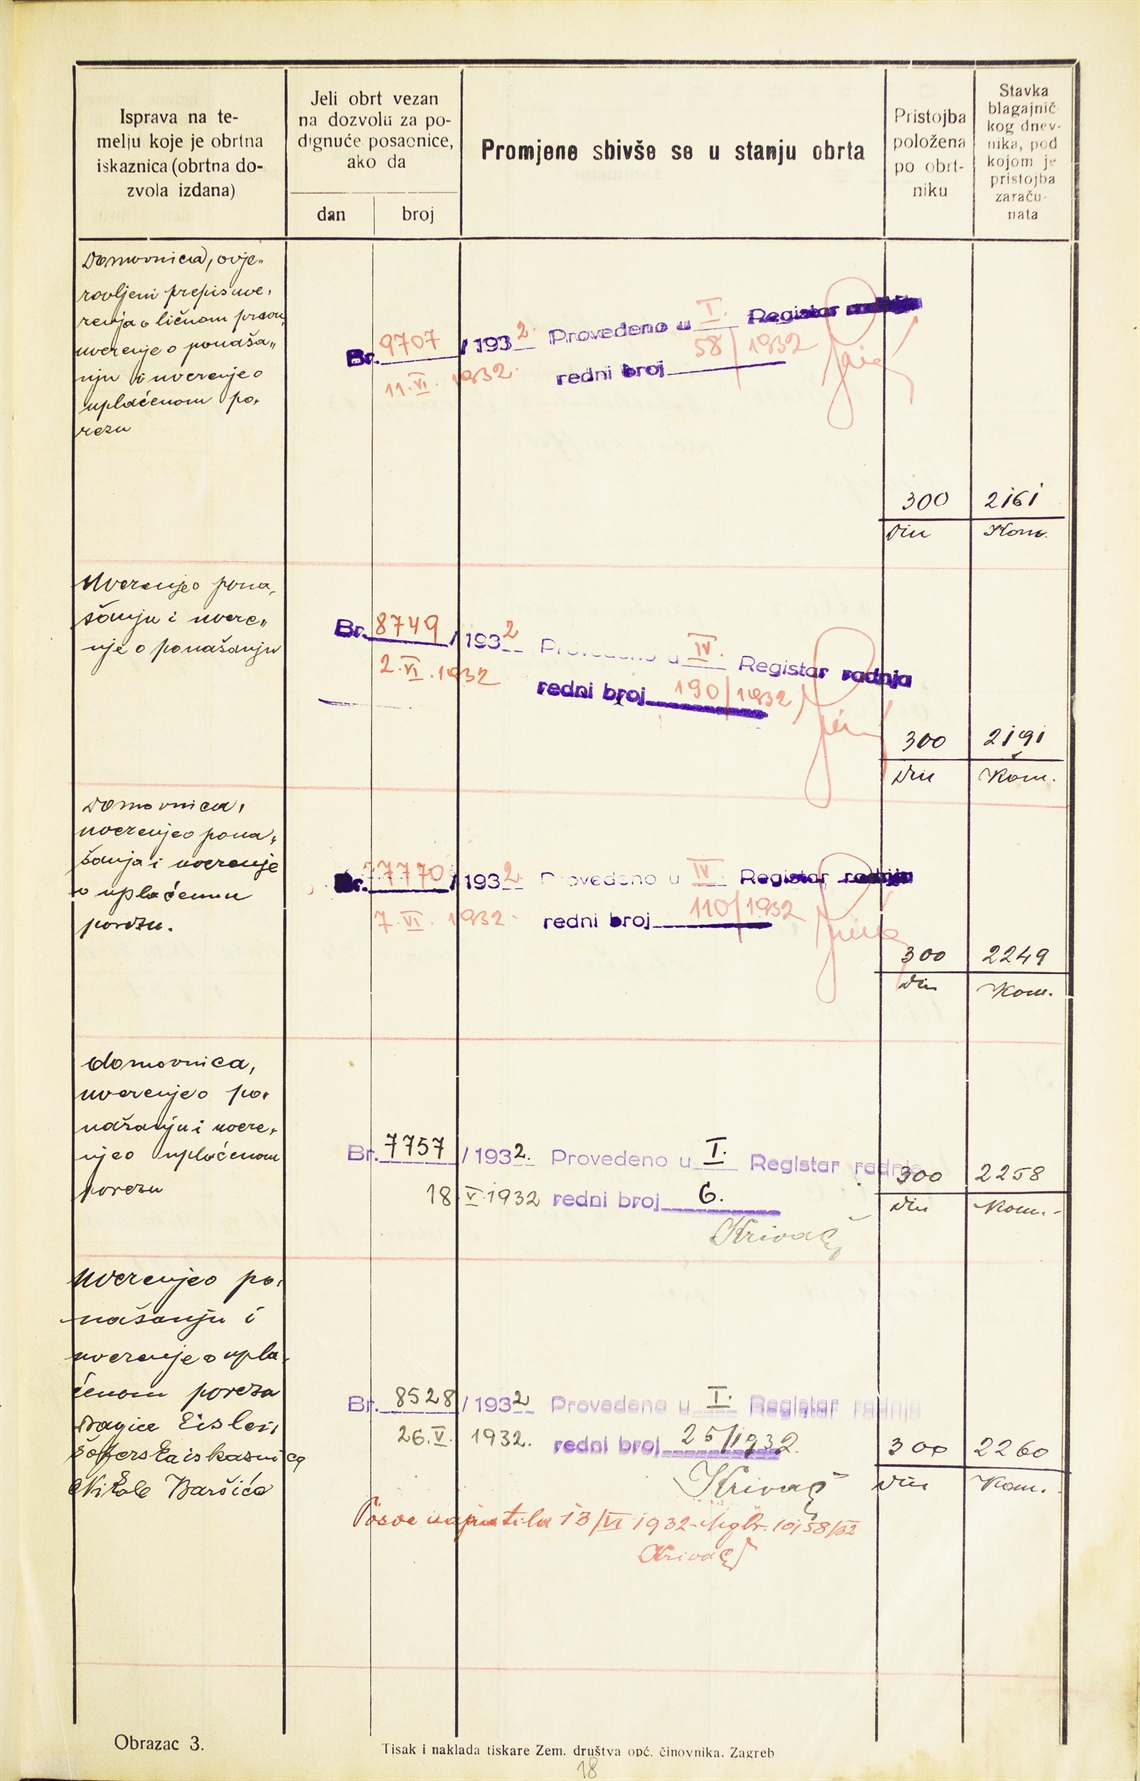 Isprava na te-
melju koje je obrtna
iskaznica (obrtna do-
zvola izdana)
Jeli obrt vezan
na dozvolu za po-
dignuće posaonice,
ako da
dan
broj
Promjene sbivše se u stanju obrta
Pristojba
položena
po obrt-
niku
Stavka
blagajnič-
kog dnev-
nika, pod
kojom je
pristojba
zaraču-
nata
Domovnica, ovje„
rovljeni prepis uve,
renja o ličnom pravu,
uverenje o ponaša„
nju i uverenje o
uplaćenom po,
rezu
Br. 9707 / 1932. Provedeno u I. Registar radnja
11. VI. 1932. redni broj 58/1932
300 2161
din Kom.
Uverenje o pona,
šanju i uvere„
nje o ponašanju
Br. 8749 / 1932 Provedeno u IV. Registar radnja
2. VI. 1932 redni broj 190/1932
300 2191
din Kom.
Domovnica,
uverenje o pona,
šanja i uverenje
o uplaćenu
porezu.
Br. 77770 / 1932. Provedeno u IV Registar radnja
7. VI. 1932. redni broj 110/1932
300 2249
din Kom.
domovnica,
uverenje o po,
našanju i uvere,
nje o uplaćenom
porezu
Br. 7757 / 1932. Provedeno u I. Registar radnje
18 V. 1932 redni broj 6.
Krivač
300 2258
din Kom.
Uverenje o po,
našanju i
uverenje o upla,
ćenom poreza
Dragice Eisler,
šoferska iskaznica
Nikole Baršića
Br. 8528 / 1932 Provedeno u I. Registar radnja
26. V. 1932. redni broj 25/1932
Krivač
300 2260
din Kom.
13/VI 1932
Krivač
Obrazac 3.
Tisak i naklada tiskare Zem. društva opć. činovnika, Zagreb
18